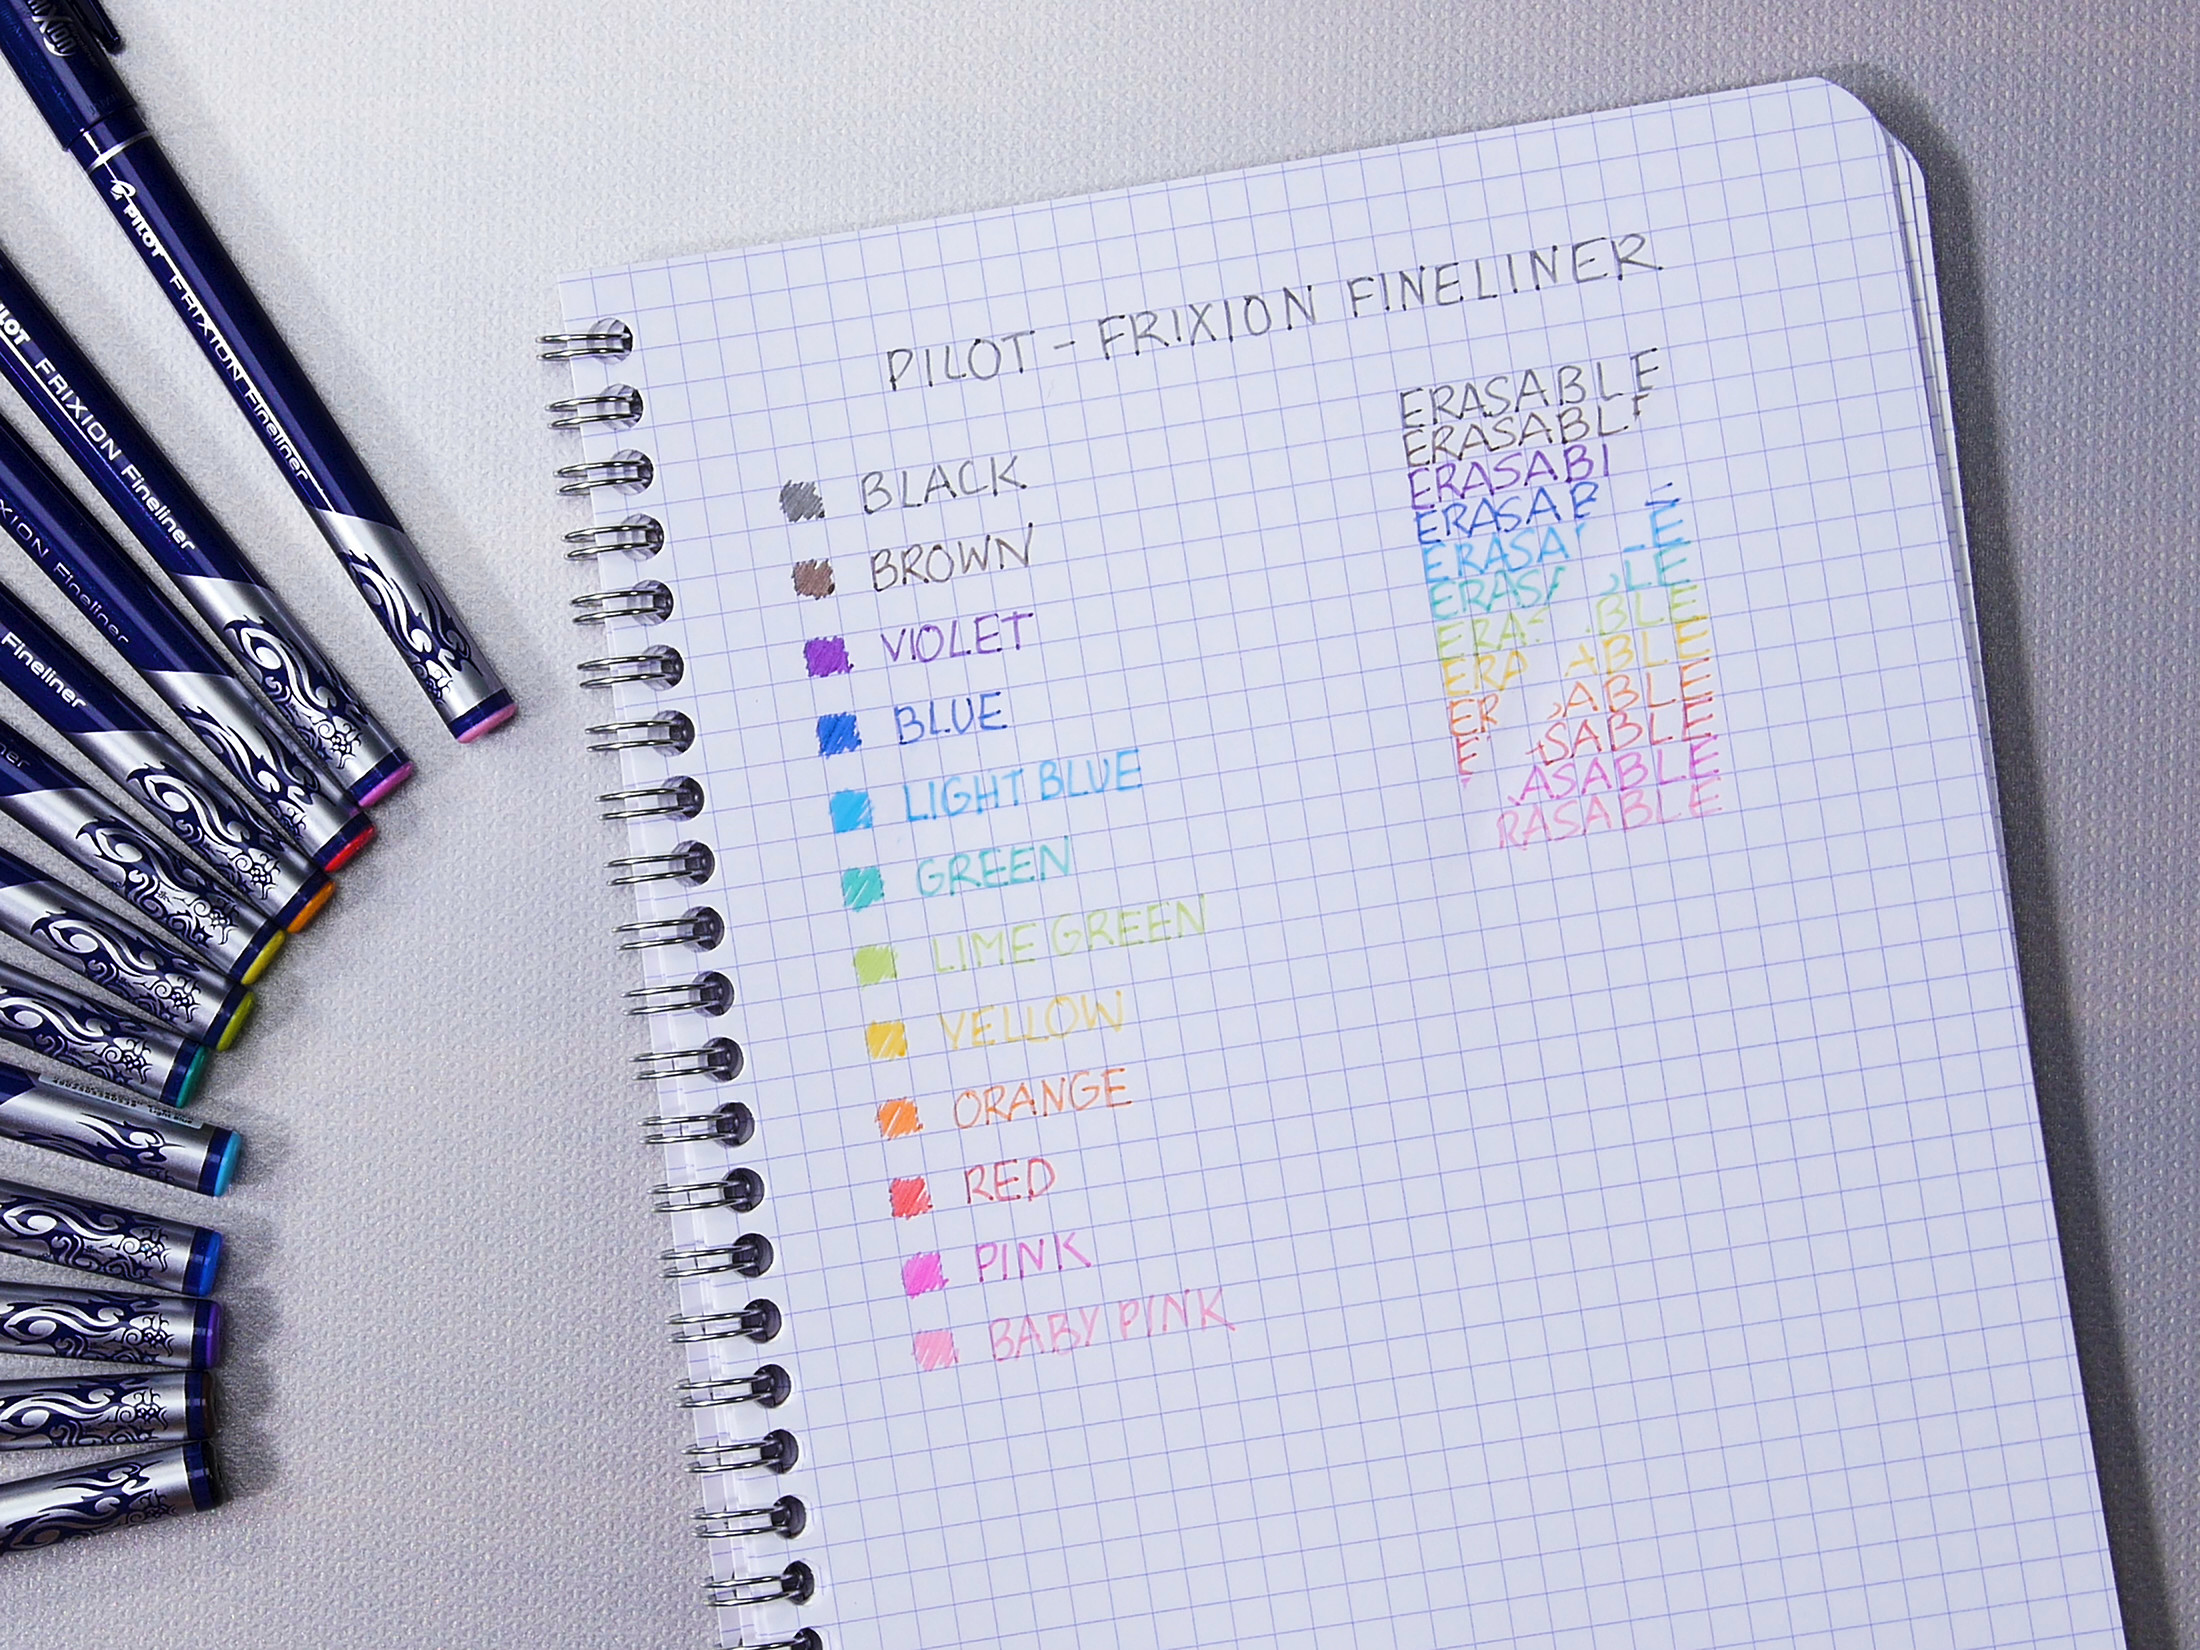 PILOT FRIXION Fineliner
PILOT FRIXION Fineliner
FRIXION Fineliner
Fineliner
PILOT - FRIXION FINELINER
BLACK
BROWN
VIOLET
BLUE
LIGHT BLUE
GREEN
LIME GREEN
YELLOW
ORANGE
RED
PINK
BABY PINK
ERASABLE
ERASABL
ERASAB
ERASAB E
ERASA E
ERAS LE
ERA BLE
ERA ABLE
ER ABLE
E SABLE
ASABLE
RASABLE